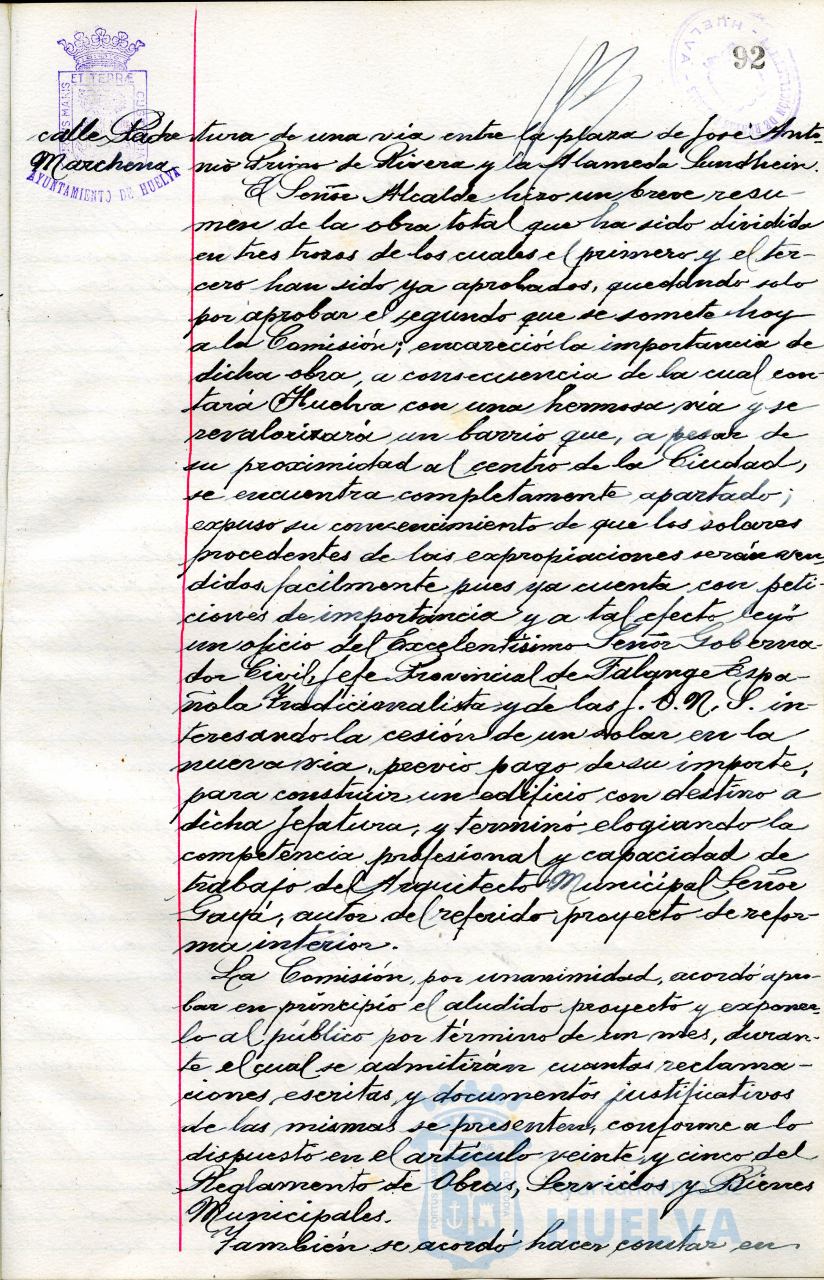 92
ET TERRÆ
AYUNTAMIENTO DE HUELVA
HUELVA
calle Padre
Marchena
tura de una via entre la plaza de José Anto-
nio Primo de Rivera y la Alameda Sundhein.
El Señor Alcalde hizo un breve resu-
men de la obra total que ha sido dividida
en tres trozos de los cuales el primero y el ter-
cero han sido ya aprobados, quedando solo
por aprobar el segundo que se somete hoy
a la Comisión; encareció la importancia de
dicha obra, a consecuencia de la cual con-
tará Huelva con una hermosa via y se
revalorizará un barrio que, a pesar de
su proximidad al centro de la Ciudad,
se encuentra completamente apartado;
expuso su convencimiento de que los solares
procedentes de las expropiaciones serán ven-
didos facilmente pues ya cuenta con peti-
ciones de importancia y a tal efecto leyó
un oficio del Excelentísimo Señor Goberna-
dor Civil, Jefe Provincial de Falange Espa-
ñola Tradicionalista y de las J. O. N. S. in-
teresando la cesión de un solar en la
nueva via, previo pago de su importe,
para construir un edificio con destino a
dicha Jefatura, y terminó elogiando la
competencia profesional y capacidad de
trabajo del Arquitecto Municipal Señor
Gayá, autor del referido proyecto de refor-
ma interior.
La Comisión, por unanimidad, acordó apro-
bar en principio el aludido proyecto y exponer-
lo al público por término de un mes, duran-
te el cual se admitirán cuantas reclama-
ciones escritas y documentos justificativos
de las mismas se presenten, conforme a lo
dispuesto en el artículo veinte y cinco del
Reglamento de Obras, Servicios y Bienes
Municipales.
También se acordó hacer constar en
Ayuntamiento de
HUELVA